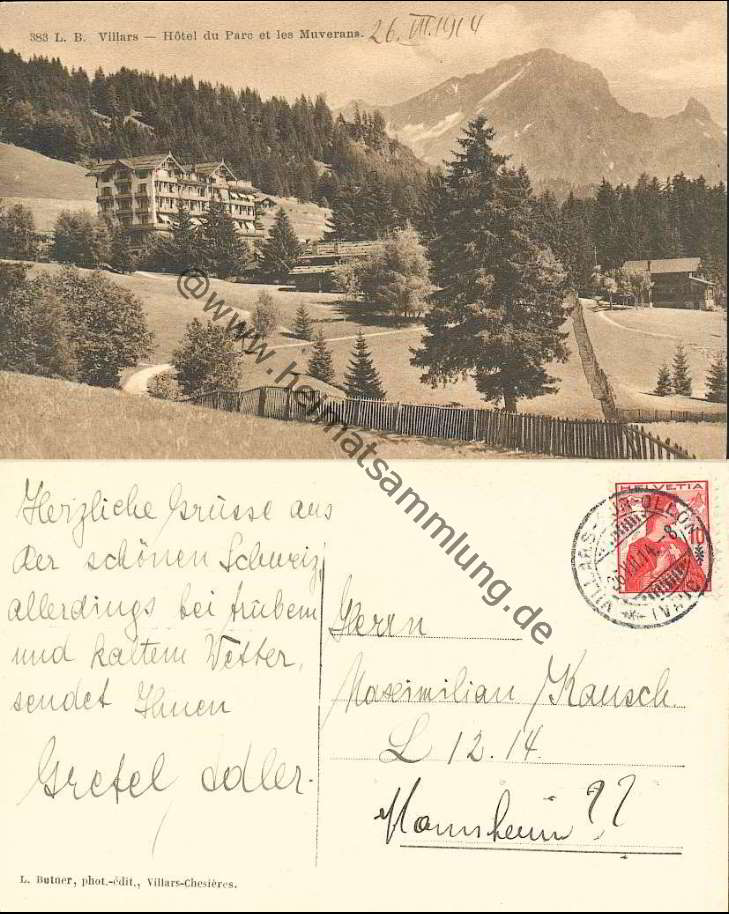 383 L. B. Villars — Hôtel du Parc et les Muverans.
26. VII. 1914
@www.heimatsammlung.de
Herzliche Grüsse aus
der schönen Schweiz,
allerdings bei trübem
und kaltem Wetter,
sendet Ihnen
Gretel Adler.
HELVETIA
10
VILLARS-SUR-OLLON
26.VII.14.-8
Herrn
Maximilian Kausch.
L 12. 14.
Mannheim ??
L. Butner, phot.-édit., Villars-Chesières.